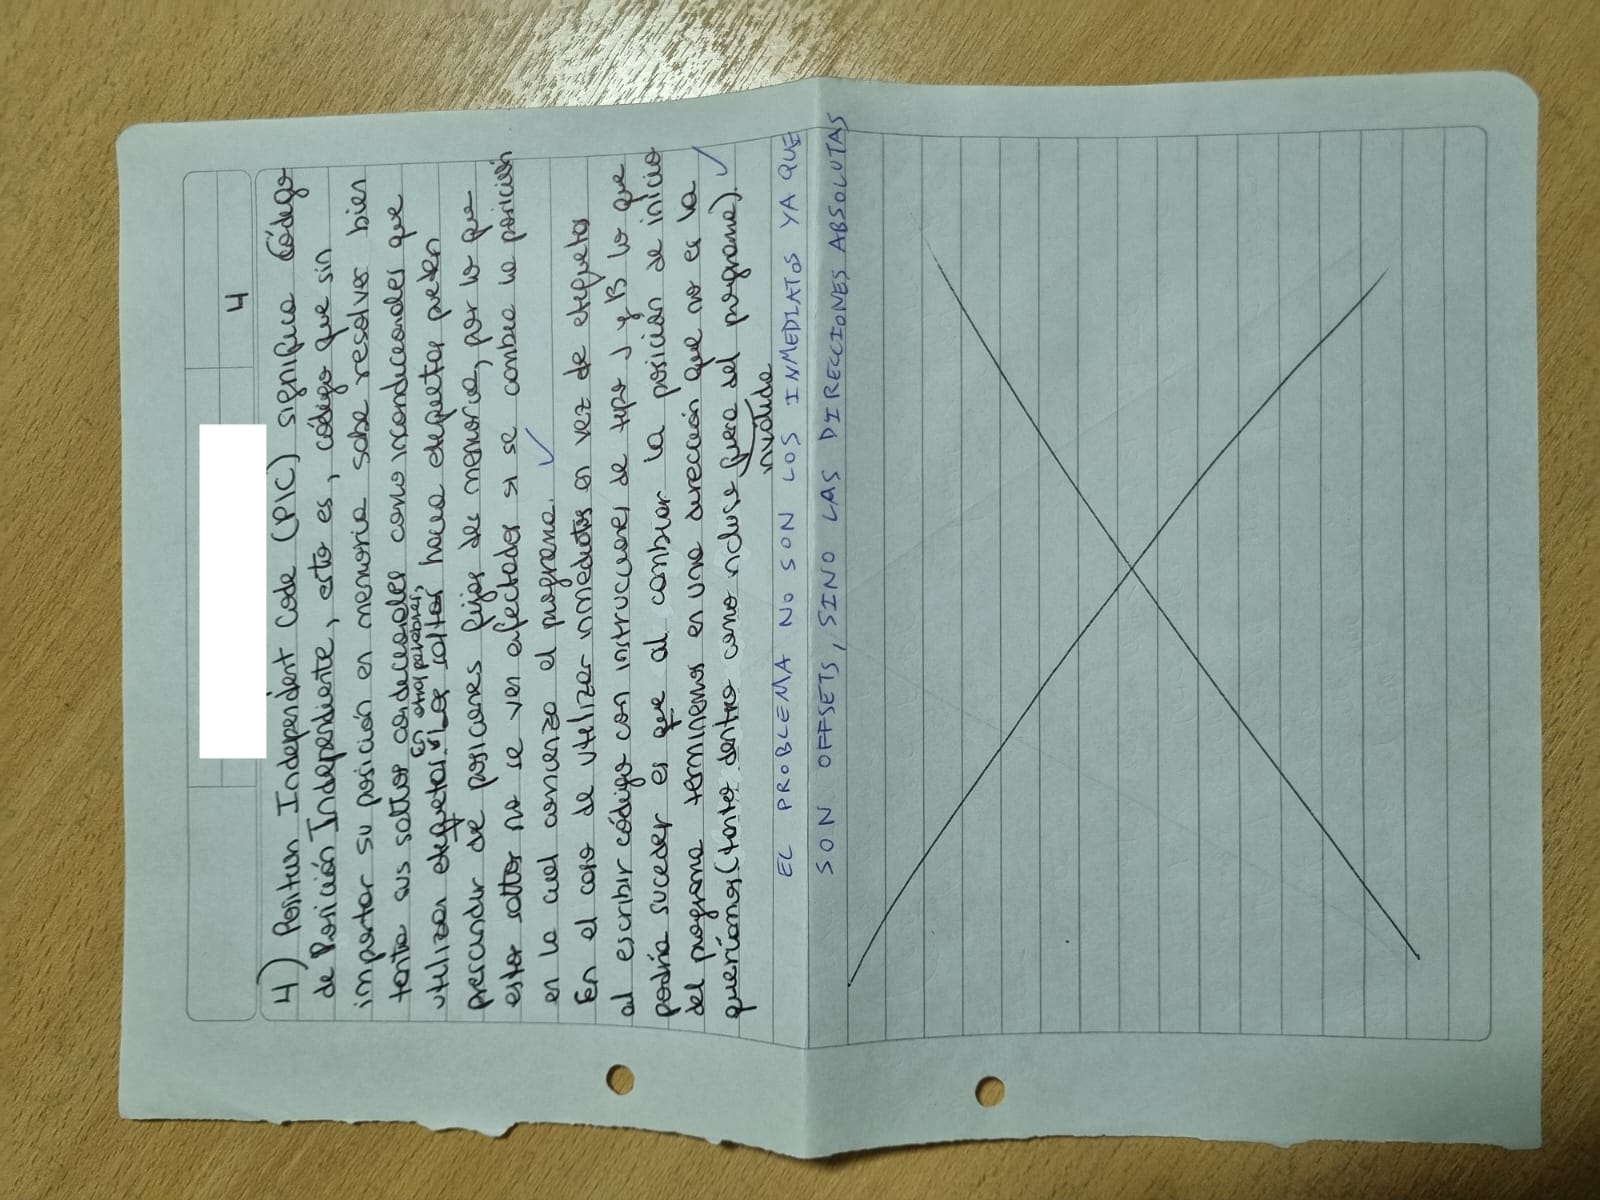 4
4) Position Independent Code (PIC) significa Código
de Posición Independiente, esto es, código que sin
importar su posición en memoria sabe resolver bien
tanto sus saltos condicionales como incondicionales que
En otras palabras,
utilizan etiquetas. Los saltos hacia etiquetas pueden
prescindir de posiciones fijas de memoria, por lo que
estos saltos no se ven afectados si se cambia la posición
en la cual comienza el programa. ✓
En el caso de utilizar inmediatos en vez de etiquetas
al escribir código con instrucciones de tipo J y B lo que
podría suceder es que al cambiar la posición de inicio
del programa terminemos en una dirección que no es la
queríamos (tanto dentro como incluso fuera del programa). ✓
inválida
EL PROBLEMA NO SON LOS INMEDIATOS YA QUE
SON OFFSETS, SINO LAS DIRECCIONES ABSOLUTAS